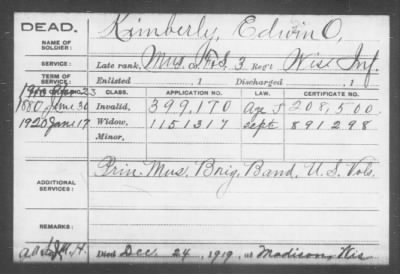 DEAD. Kimberly, Edwin O,
NAME OF SOLDIER:
SERVICE: Late rank, Mus. 3 Reg't Wisc Inf.
TERM OF SERVICE: Enlisted , 1 Discharged , 1
23 CLASS. APPLICATION NO. LAW. CERTIFICATE NO.
1880 June 30 Invalid, 399,170 208,500.
1920 Jany 17 Widow, 1151317 Sept 891298
Minor,
ADDITIONAL SERVICES: Prin. Mus. Brig. Band, U.S. Vols.
REMARKS:
Died Dec. 24, 1919, at Madison, Wis